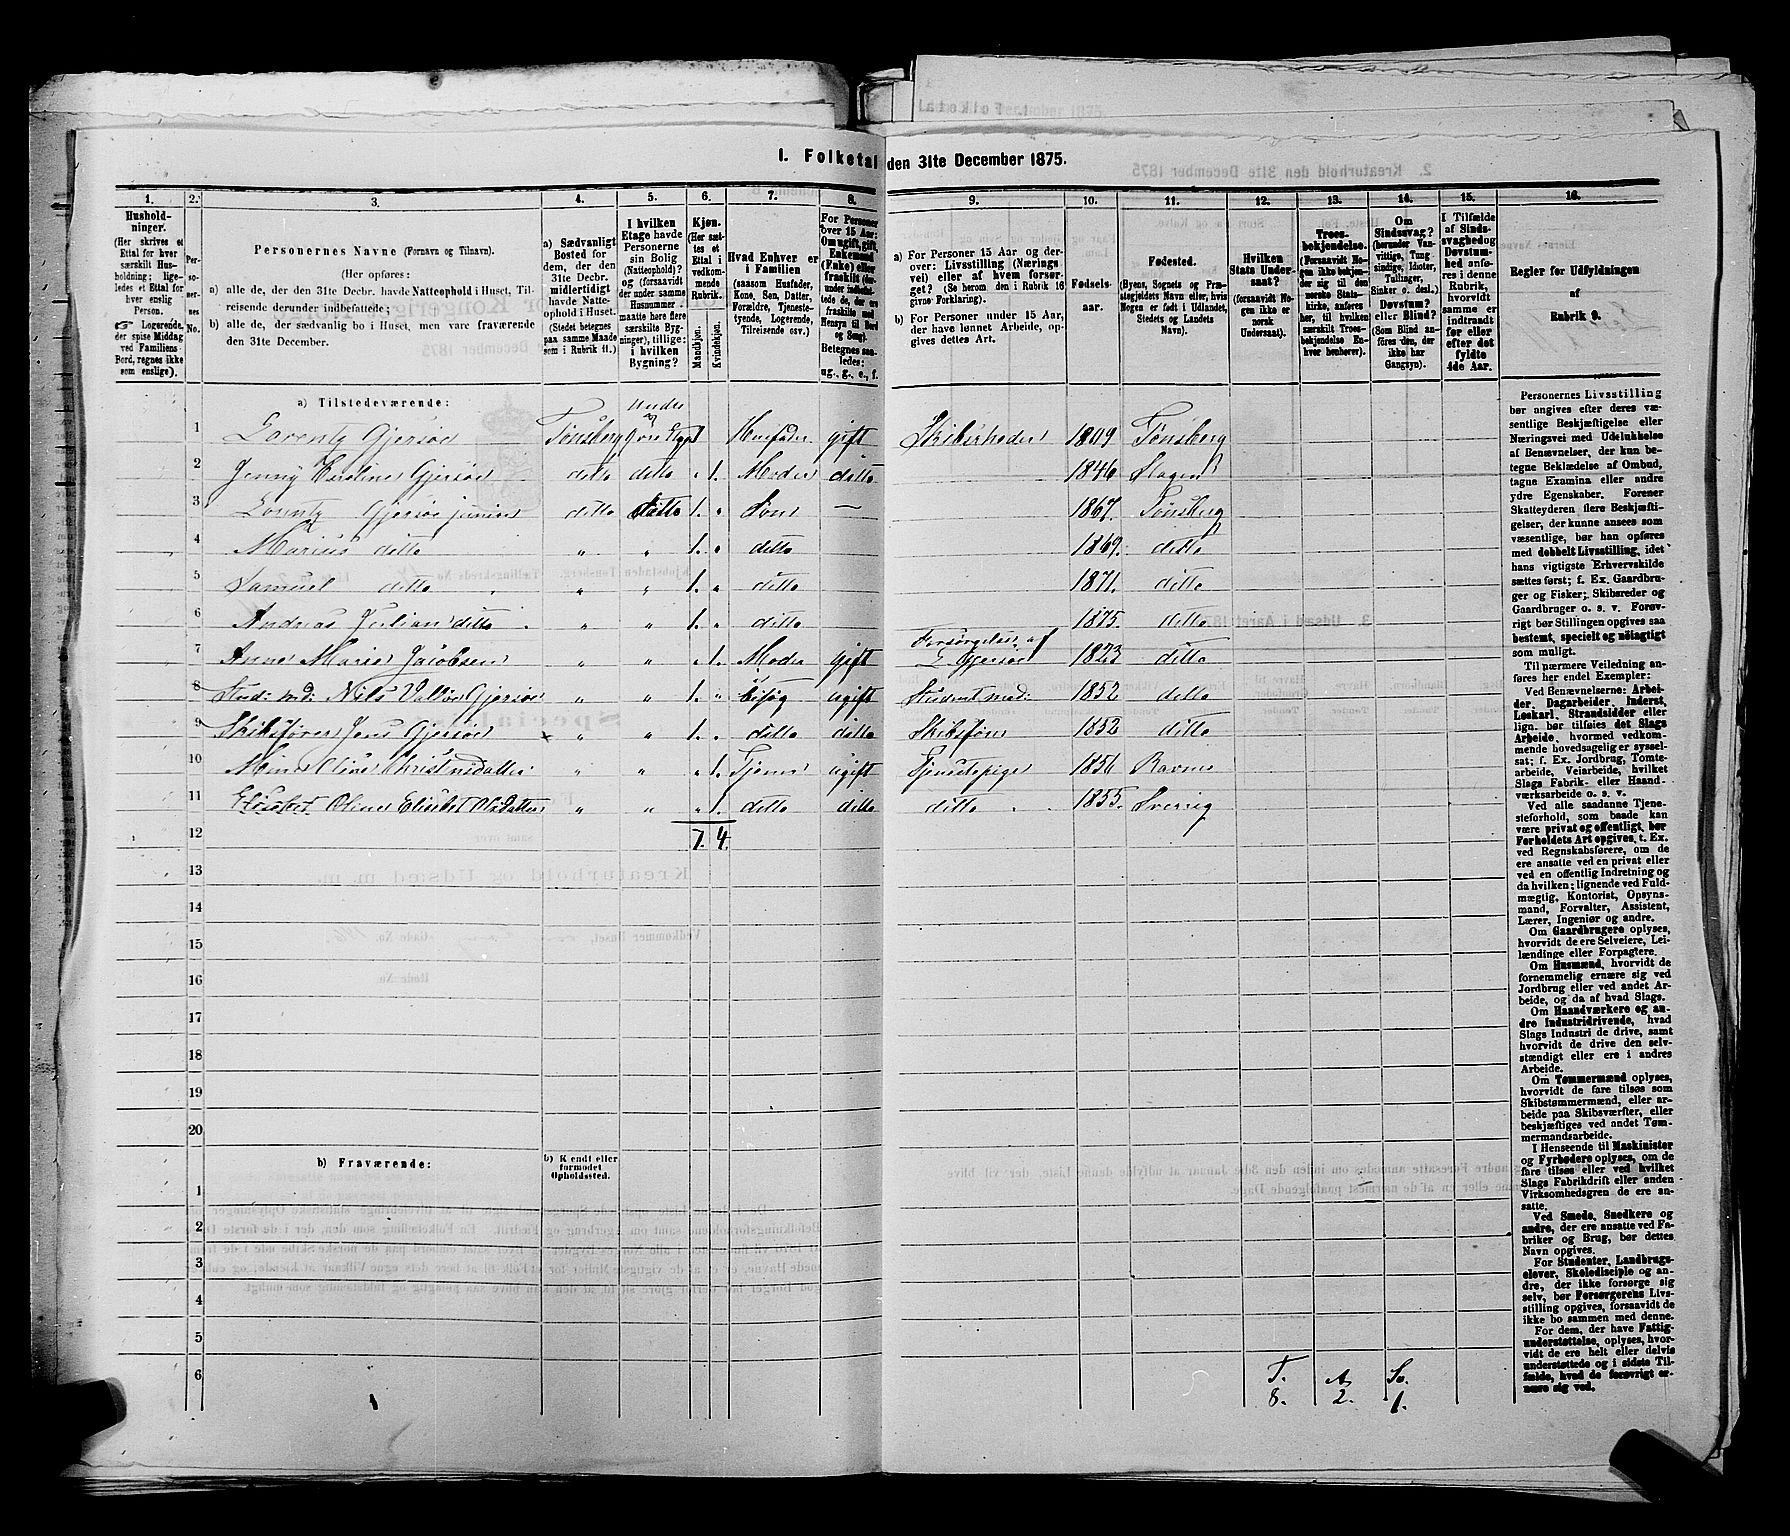 I. Folketal den 31te December 1875.
1. 2. 3. 4. 5. 6. 7. 8. 9. 10. 11. 12. 13. 14. 15. 16.
Hushold-
ninger.
(Her skrives et
Ettal for hver
særskilt Hus-
holdning; lige-
ledes et Ettal for
hver enslig
Person.
Logerende,
der spise Middag
ved Familiens
Bord, regnes ikke
som enslige).
Per-
so-
ner-
nes
No.
Personernes Navne (Fornavn og Tilnavn).
(Her opføres:
a) alle de, der den 31te Decbr. havde Natteophold i Huset, Til-
reisende derunder indbefattede;
b) alle de, der sædvanlig bo i Huset, men vare fraværende
den 31te December.
a) Sædvanligt
Bosted for
dem, der den
31te Decbr.
midlertidigt
havde Natte-
ophold i Huset.
(Stedet betegnes
paa samme Maade
som i Rubrik 11.)
I hvilken
Etage havde
Personerne
sin Bolig
(Natteophold)?
og (forsaavidt
der under samme
Husnummer
maatte høre flere
særskilte Byg-
ninger), tillige:
i hvilken
Bygning?
Kjøn.
(Her sæt-
tes et
Ettal i
vedkom-
mende
Rubrik.
Mandkjøn.
Kvindekjøn.
Hvad Enhver er
i Familien
(saasom Husfader,
Kone, Søn, Datter,
Forældre, Tjeneste-
tyende, Logerende,
Tilreisende osv.)
For Personer
over 15 Aar:
Om ugift, gift,
Enkemand
(Enke) eller
fraskilt (der-
under indbefat-
tede de, der ere
fraskilte med
Hensyn til Bord
og Seng).
Betegnes saa-
ledes:
ug., g., e., f.
a) For Personer 15 Aar og der-
over: Livsstilling (Nærings
vei) eller af hvem forsør-
get? (Se herom den i Rubrik 16
givne Forklaring).
b) For Personer under 15 Aar,
der have lønnet Arbeide, op-
gives dettes Art.
Fødsels-
aar.
Fødested.
(Byens, Sognets og Præ-
stegjeldets Navn, eller, hvis
Nogen er født i Udlandet,
Stedets og Landets
Navn).
Hvilken
Stats Under-
saat?
(forsaavidt No-
gen ikke er
norsk
Undersaat).
Troes-
bekjendelse.
(Forsaavidt No-
gen ikke bekjen-
der sig til den
norske Stats-
kirke, anføres
her, til hvilken
særskilt Troes-
bekjendelse En-
hver henhører).
Om
Sindssvag?
(herunder Van-
vittige, Tung-
sindige, Idioter,
Tullinger,
Sinker o. desl.)
Døvstum?
eller Blind?
(Som Blind an-
føres den, der
ikke har
Gangsyn).
I Tilfælde
af Sinds-
svaghed og
Døvstum-
hed anfø-
res i denne
Rubrik,
hvorvidt
samme er
indtraadt
før eller
efter det
fyldte
4de Aar.
Regler for Udfyldningen
af
Rubrik 9.
a) Tilstedeværende:
1 Lorentz Gjersøe Tønsberg Undre og Øvre Etage 1 Husfader gift Skibsrheder 1849 Tønsberg
2 Jenny Karoline Gjersøe ditto ditto „ 1. Moder ditto 1846 Slagen
3 Lorentz Gjersøe junior ditto ditto 1. „ Søn — 1867. Tønsberg
4 Marius ditto „ „ 1. „ ditto 1869. ditto
5 Samuel ditto „ „ 1. „ ditto 1871. ditto
6 Andreas Julian ditto „ „ 1. „ ditto 1875. ditto
7 Anne Marie Jacobsen „ „ „ 1. Moder gift Forsørgelse af L Gjersøe 1823 ditto
8 Stud: md: Nils Gjersøe „ „ 1. „ ugift Student med: 1852 ditto
9 Skibsfører Jens Gjersøe x „ „ 1. „ ditto ditto Skibsfører 1852 ditto
10 Mina Olive Christnsdatter „ „ „ 1. Tjener ugift Tjenestepige 1856 Ravnø
11 Elisabet Oline Elisabet Olsdatter „ „ „ 1. ditto ditto ditto 1855. Sverrig
12 7. 4.
13
14
15
16
17
18
19
20
b) Fraværende:
b) Kjendt eller
formodet
Opholdssted.
1
2
3
4
5
6
T. A. So.
8. 2. 1.
Personernes Livsstilling
bør angives efter deres væ-
sentlige Beskjæftigelse eller
Næringsvei med Udelukkelse
af Benævnelser, der kun be-
tegne Beklædelse af Ombud,
tagne Examina eller andre
ydre Egenskaber. Forener
Skatteyderen flere Beskjæfti-
gelser, der kunne ansees som
væsentlige, bør han opføres
med dobbelt Livsstilling, idet
hans vigtigste Erhvervskilde
sættes først; f. Ex. Gaardbru-
ger og Fisker; Skibsreder og
Gaardbruger o. s. v. Forøv-
rigt bør Stillingen opgives saa
bestemt, specielt og nøiagtigt
som muligt.
Til nærmere Veiledning an-
føres her endel Exempler:
Ved Benævnelserne: Arbei-
der, Dagarbeider, Inderst,
Løskarl, Strandsidder eller
lign. bør tilføies det Slags
Arbeide, hvormed vedkom-
mende hovedsagelig er syssel-
sat; f. Ex. Jordbrug, Tomte-
arbeide, Veiarbeide, hvilket
Slags Fabrik- eller Haand-
værksarbeide o. s. v.
Ved alle saadanne Tjene-
steforhold, som baade kan
være privat og offentligt, bør
Forholdets Art opgives, t. Ex.
ved Regnskabsførere, om de
ere ansatte ved en privat eller
ved en offentlig Indretning og
da hvilken; lignende ved Fuld-
mægtig, Kontorist, Opsyns-
mand, Forvalter, Assistent,
Lærer, Ingeniør og andre.
Om Gaardbrugere oplyses,
hvorvidt de ere Selveiere, Lei-
lændinge eller Forpagtere.
Om Husmænd, hvorvidt de
fornemmelig ernære sig ved
Jordbrug eller ved andet Ar-
beide, og da af hvad Slags.
Om Haandværkere og an-
dre Industridrivende, hvad
Slags Industri de drive, samt
hvorvidt de drive den selv-
stændigt eller ere i andres
Arbeide.
Om Tømmermænd oplyses,
hvorvidt de fare tilsøs som
Skibstømmermænd, eller ar-
beide paa Skibsværfter, eller
beskjæftiges ved andet Tøm-
mermandsarbeide.
I Henseende til Maskinister
og Fyrbødere oplyses, om de
fare tilsøs eller ved hvilket
Slags Fabrikdrift eller anden
Virksomhedsgren de ere an-
satte.
Ved Smede, Snedkere og
andre, der ere ansatte ved Fa-
briker og Brug, bør dettes
Navn opgives.
For Studenter, Landbrugs-
elever, Skoledisciple og an-
dre, der ikke forsørge sig
selv, bør Forsørgerens Livs-
stilling opgives, forsaavidt de
ikke bo sammen med denne.
For dem, der have Fattig-
understøttelse, oplyses, hvor-
vidt de ere helt eller delvis
understøttede og i sidste Til-
fælde, hvad de forøvrigt er-
nære sig ved.